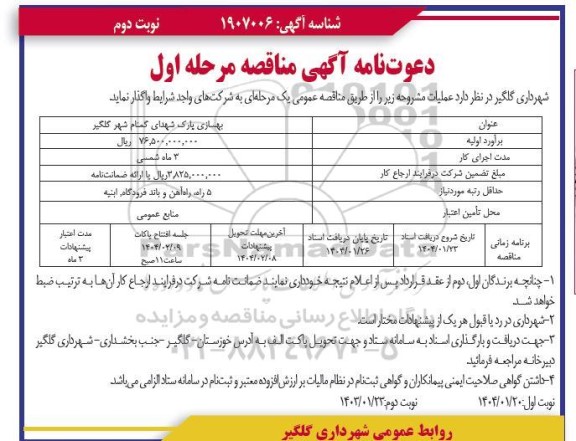 شناسه آگهی: ۱۹۰۷۰۰۶ نوبت دوم
دعوت‌نامه آگهی مناقصه مرحله اول
شهرداری گلگیر در نظر دارد عملیات مشروحه زیر را از طریق مناقصه عمومی یک مرحله‌ای به شرکت‌های واجد شرایط واگذار نماید.
عنوان بهسازی پارک شهدای گمنام شهر گلگیر
برآورد اولیه ۷۶,۵۰۰,۰۰۰,۰۰۰ ریال
مدت اجرای کار ۳ ماه شمسی
مبلغ تضمین شرکت در فرایند ارجاع کار ۳,۸۲۵,۰۰۰,۰۰۰ ریال با ارائه ضمانت‌نامه
حداقل رتبه موردنیاز ۵ راه، راه‌آهن و باند فرودگاه، ابنیه
محل تأمین اعتبار منابع عمومی
برنامه زمانی مناقصه
تاریخ شروع دریافت اسناد ۱۴۰۴/۰۱/۲۳
تاریخ پایان دریافت اسناد ۱۴۰۴/۰۱/۲۶
آخرین مهلت تحویل پیشنهادات ۱۴۰۴/۰۲/۰۸
جلسه افتتاح پاکات ۱۴۰۴/۰۲/۰۹ ساعت ۱۱ صبح
مدت اعتبار پیشنهادات ۳ ماه
۱-چنانچه برندگان اول، دوم از عقد قرارداد پس از اعلام نتیجه خودداری نمایند ضمانت نامه شرکت در فرایند ارجاع کار آن‌ها به ترتیب ضبط
خواهد شد.
۲-شهرداری در رد یا قبول هر یک از پیشنهادات مختار است.
۳-جهت دریافت و بارگذاری اسناد به سامانه ستاد و جهت تحویل پاکت الف به آدرس خوزستان- گلگیر -جنب بخشداری- شهرداری گلگیر
دبیرخانه مراجعه فرمائید.
۴-داشتن گواهی صلاحیت ایمنی پیمانکاران و گواهی ثبت‌نام در نظام مالیات بر ارزش افزوده معتبر و ثبت‌نام در سامانه ستاد الزامی می‌باشد.
نوبت اول: ۱۴۰۴/۰۱/۲۰ نوبت دوم: ۱۴۰۴/۰۱/۲۳
روابط عمومی شهرداری گلگیر